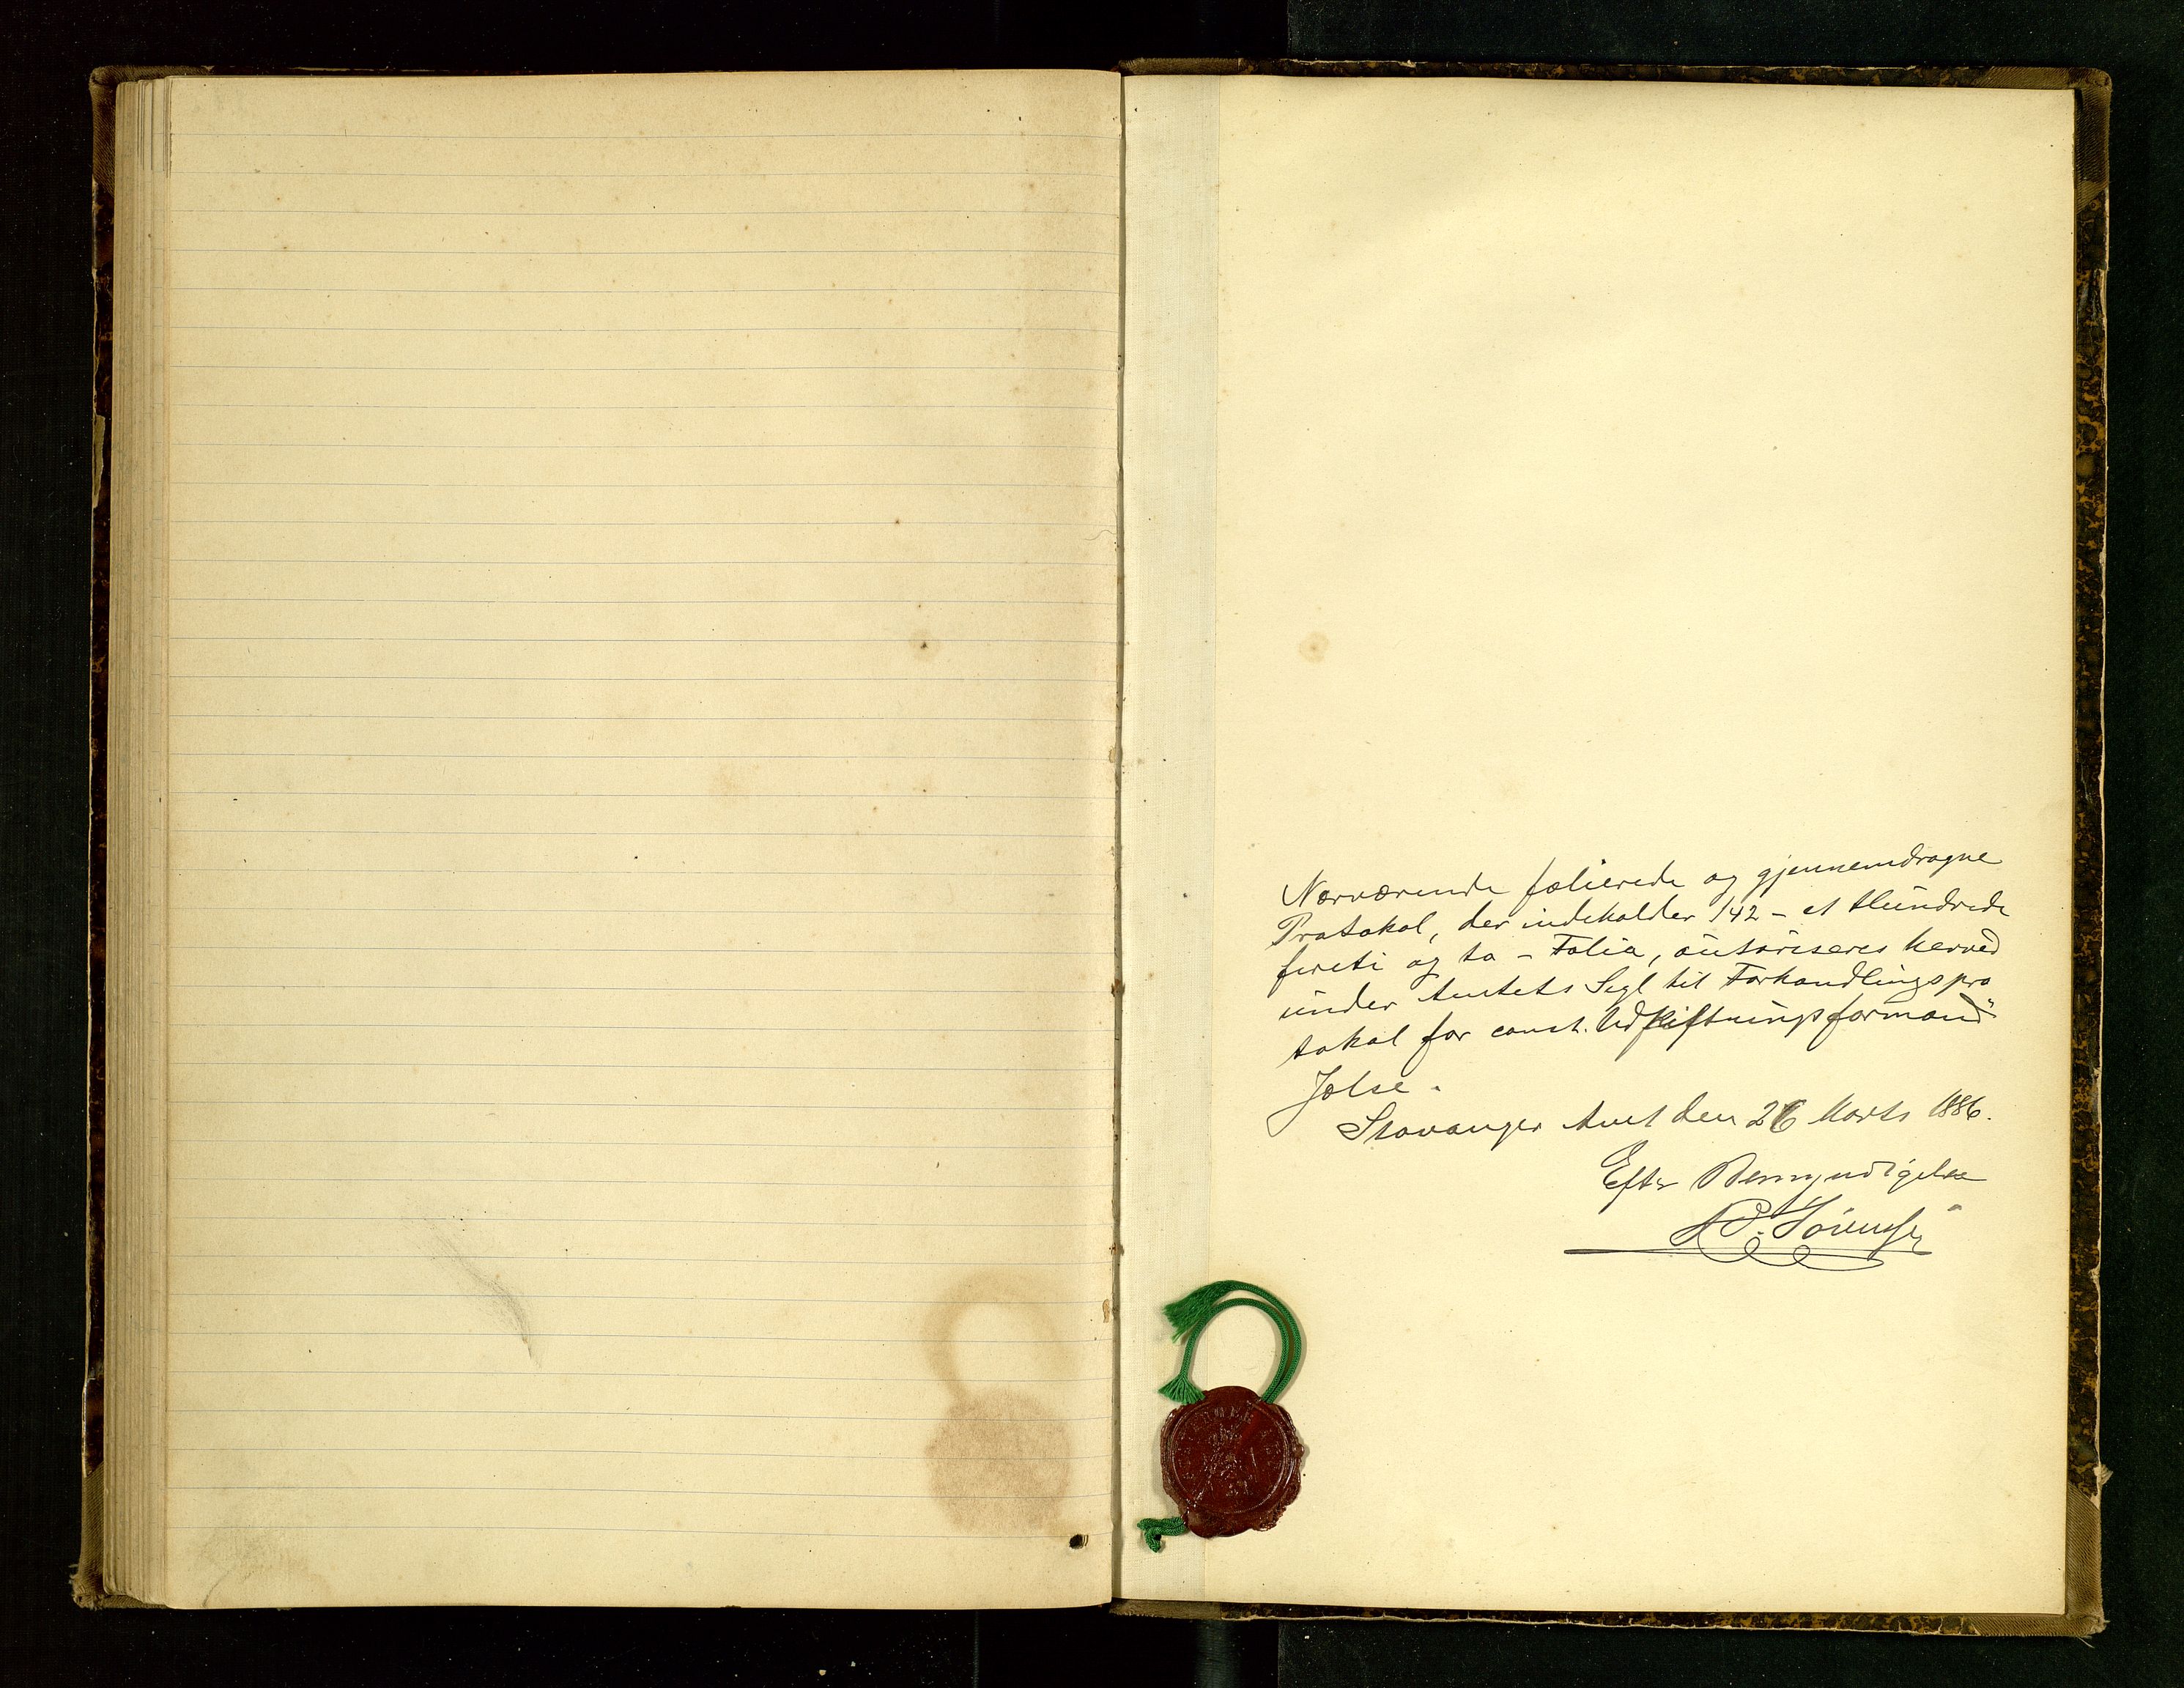 Nærværende folierede og gjennemdragne
Protokol, der indeholder 142 - et Hundrede
fireti og to - Folia, autoriseres herved
under Amtets Segl til Forhandlingspro
tokol for const. Udskiftningsformand
Jølse.
Stavanger Amt den 26 Marts 1886.
Efter Bemyndigelse